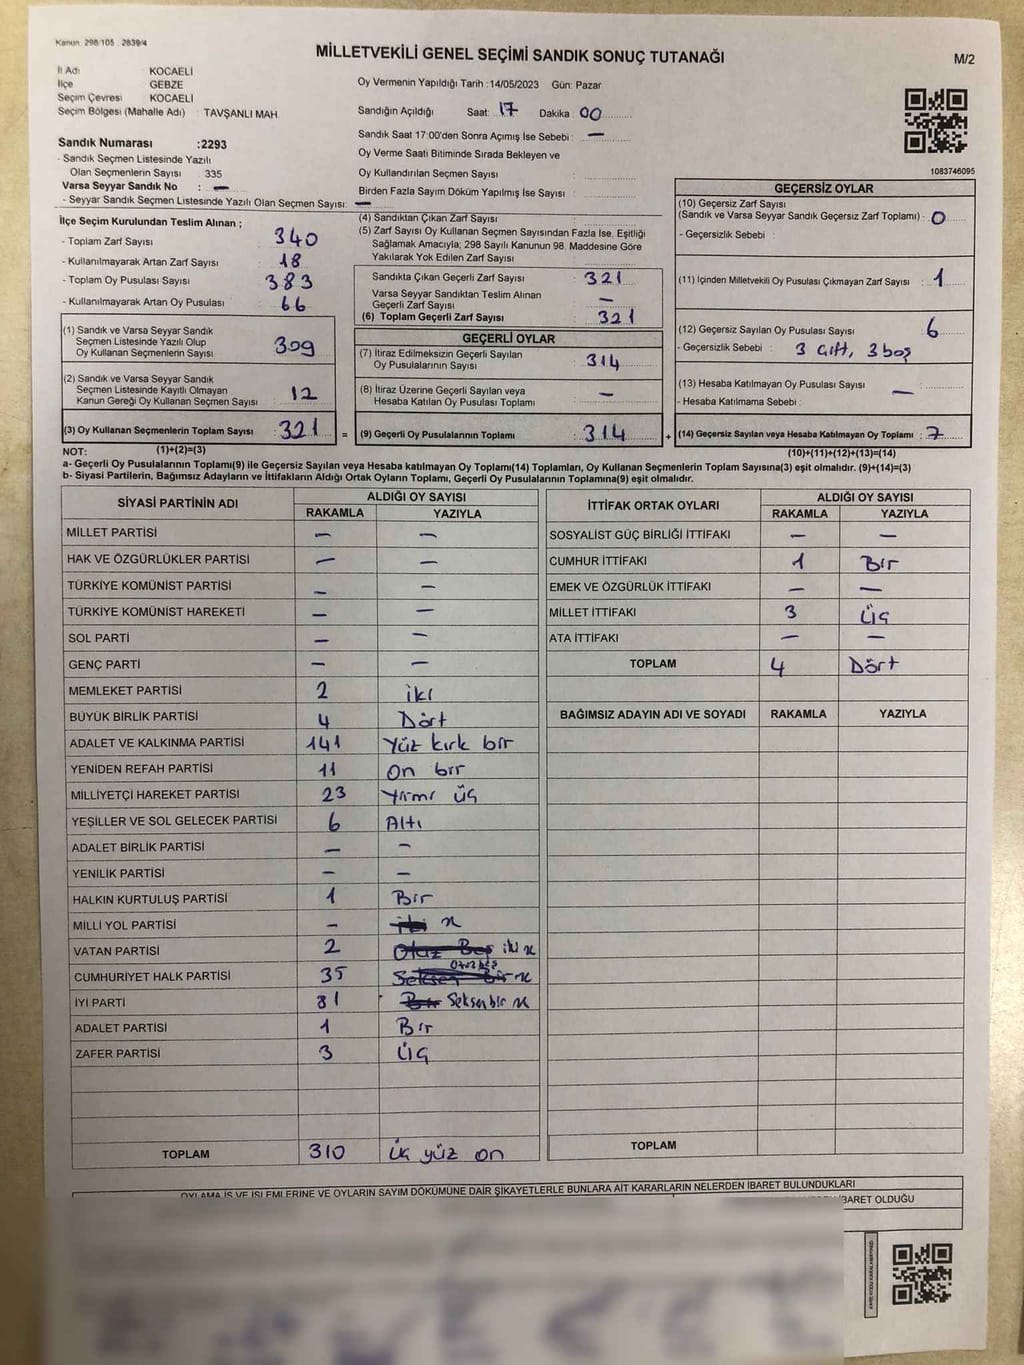 Kanun 298/105 2839/4
MİLLETVEKİLİ GENEL SEÇİMİ SANDIK SONUÇ TUTANAĞI
M/2
İl Adı: KOCAELİ
İlçe GEBZE
Seçim Çevresi KOCAELİ
Seçim Bölgesi (Mahalle Adı) TAVŞANLI MAH.
Oy Vermenin Yapıldığı Tarih :14/05/2023 Gün: Pazar
Sandığın Açıldığı Saat: 17 Dakika 00
Sandık Saat 17:00'den Sonra Açımış İse Sebebi : —
Oy Verme Saati Bitiminde Sırada Bekleyen ve
Oy Kullandırılan Seçmen Sayısı :
Birden Fazla Sayım Döküm Yapılmış İse Sayısı :
1083746095
Sandık Numarası :2293
- Sandık Seçmen Listesinde Yazılı
Olan Seçmenlerin Sayısı : 335
Varsa Seyyar Sandık No : —
- Seyyar Sandık Seçmen Listesinde Yazılı Olan Seçmen Sayısı: —
İlçe Seçim Kurulundan Teslim Alınan ;
- Toplam Zarf Sayısı : 340
- Kullanılmayarak Artan Zarf Sayısı : 18
- Toplam Oy Pusulası Sayısı : 383
- Kullanılmayarak Artan Oy Pusulası : 66
(1) Sandık ve Varsa Seyyar Sandık
Seçmen Listesinde Yazılı Olup
Oy Kullanan Seçmenlerin Sayısı : 309
(2) Sandık ve Varsa Seyyar Sandık
Seçmen Listesinde Kayıtlı Olmayan
Kanun Gereği Oy Kullanan Seçmen Sayısı : 12
(3) Oy Kullanan Seçmenlerin Toplam Sayısı : 321 =
(4) Sandıktan Çıkan Zarf Sayısı :
(5) Zarf Sayısı Oy Kullanan Seçmen Sayısından Fazla İse, Eşitliği
Sağlamak Amacıyla; 298 Sayılı Kanunun 98. Maddesine Göre
Yakılarak Yok Edilen Zarf Sayısı :
Sandıkta Çıkan Geçerli Zarf Sayısı : 321
Varsa Seyyar Sandıktan Teslim Alınan
Geçerli Zarf Sayısı : —
(6) Toplam Geçerli Zarf Sayısı : 321
GEÇERLİ OYLAR
(7) İtiraz Edilmeksizin Geçerli Sayılan
Oy Pusulalarının Sayısı : 314
(8) İtiraz Üzerine Geçerli Sayılan veya
Hesaba Katılan Oy Pusulası Toplamı : —
(9) Geçerli Oy Pusulalarının Toplamı : 314 +
GEÇERSİZ OYLAR
(10) Geçersiz Zarf Sayısı
(Sandık ve Varsa Seyyar Sandık Geçersiz Zarf Toplamı) : 0
- Geçersizlik Sebebi :
(11) İçinden Milletvekili Oy Pusulası Çıkmayan Zarf Sayısı : 1
(12) Geçersiz Sayılan Oy Pusulası Sayısı : 6
- Geçersizlik Sebebi : 3 Çift, 3 boş
(13) Hesaba Katılmayan Oy Pusulası Sayısı : —
- Hesaba Katılmama Sebebi :
(14) Geçersiz Sayılan veya Hesaba Katılmayan Oy Toplamı : 7
NOT: (1)+(2)=(3)
(10)+(11)+(12)+(13)=(14)
a- Geçerli Oy Pusulalarının Toplamı(9) ile Geçersiz Sayılan veya Hesaba katılmayan Oy Toplamı(14) Toplamları, Oy Kullanan Seçmenlerin Toplam Sayısına(3) eşit olmalıdır. (9)+(14)=(3)
b- Siyasi Partilerin, Bağımsız Adayların ve İttifakların Aldığı Ortak Oyların Toplamı, Geçerli Oy Pusulalarının Toplamına(9) eşit olmalıdır.
SİYASİ PARTİNİN ADI ALDIĞI OY SAYISI
RAKAMLA YAZIYLA
MİLLET PARTİSİ — —
HAK VE ÖZGÜRLÜKLER PARTİSİ — —
TÜRKİYE KOMÜNİST PARTİSİ — —
TÜRKİYE KOMÜNİST HAREKETİ — —
SOL PARTİ — —
GENÇ PARTİ — —
MEMLEKET PARTİSİ 2 iki
BÜYÜK BİRLİK PARTİSİ 4 Dört
ADALET VE KALKINMA PARTİSİ 141 Yüz kırk bir
YENİDEN REFAH PARTİSİ 11 On bir
MİLLİYETÇİ HAREKET PARTİSİ 23 Yirmi üç
YEŞİLLER VE SOL GELECEK PARTİSİ 6 Altı
ADALET BİRLİK PARTİSİ — —
YENİLİK PARTİSİ — —
HALKIN KURTULUŞ PARTİSİ 1 Bir
MİLLİ YOL PARTİSİ — iki x
VATAN PARTİSİ 2 Otuz Beş iki x
CUMHURİYET HALK PARTİSİ 35 Seksen bir Otuz beş x
İYİ PARTİ 81 Bir Seksen bir x
ADALET PARTİSİ 1 Bir
ZAFER PARTİSİ 3 Üç
TOPLAM 310 Üç yüz on
İTTİFAK ORTAK OYLARI ALDIĞI OY SAYISI
RAKAMLA YAZIYLA
SOSYALİST GÜÇ BİRLİĞİ İTTİFAKI — —
CUMHUR İTTİFAKI 1 Bir
EMEK VE ÖZGÜRLÜK İTTİFAKI — —
MİLLET İTTİFAKI 3 Üç
ATA İTTİFAKI — —
TOPLAM 4 Dört
BAĞIMSIZ ADAYIN ADI VE SOYADI RAKAMLA YAZIYLA
TOPLAM
OYLAMA İŞ VE İŞLEMLERİNE VE OYLARIN SAYIM DÖKÜMÜNE DAİR ŞİKAYETLERLE BUNLARA AİT KARARLARIN NELERDEN İBARET BULUNDUKLARI
İBARET OLDUĞU